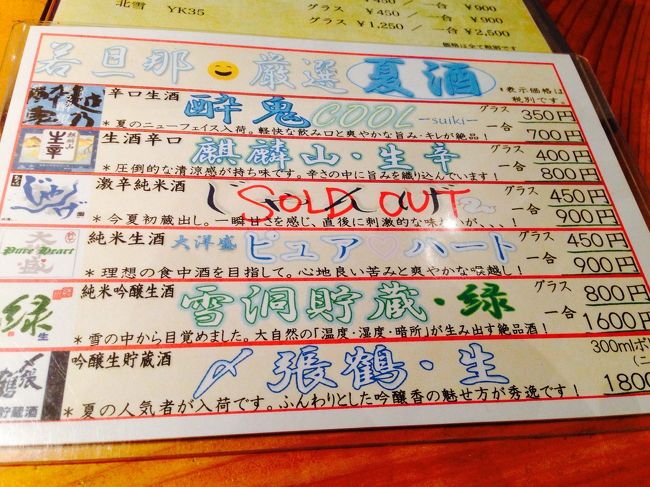 ¥450 / 一合 ¥900
北雪 YK35 グラス ¥1,250 / 一合 ¥2,500
価格は全て税別です
若旦那 厳選 夏酒
*表示価格は税別です。
辛口生酒 酔鬼 COOL -suiki- グラス 350円
*夏のニューフェイス入荷。軽快な飲み口と爽やかな旨み・キレが絶品! 一合 700円
生酒辛口 麒麟山・生辛 グラス 400円
*圧倒的な清涼感が持ち味です。辛さの中に旨みを織り込んでいます! 一合 800円
激辛純米酒 SOLD OUT グラス 450円
*今夏初蔵出し。一瞬甘さを感じ、直後に刺激的な味わいが、、、! 一合 900円
純米生酒 大洋盛 ピュア♡ハート グラス 450円
*理想の食中酒を目指して。心地良い苦みと爽やかな喉越し! 一合 900円
Pure Heart
純米吟醸生酒 雪洞貯蔵・緑 グラス 800円
*雪の中から目覚めました。大自然の「温度・湿度・暗所」が生み出す絶品酒! 一合 1600円
緑 生
吟醸生貯蔵酒 〆張鶴・生 300mlボ
*夏の人気者が入荷です。ふんわりとした吟醸香の魅せ方が秀逸です! 1800
貯蔵酒